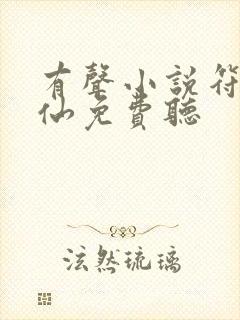 有聲小說符
仙免費聽
泫然琉璃